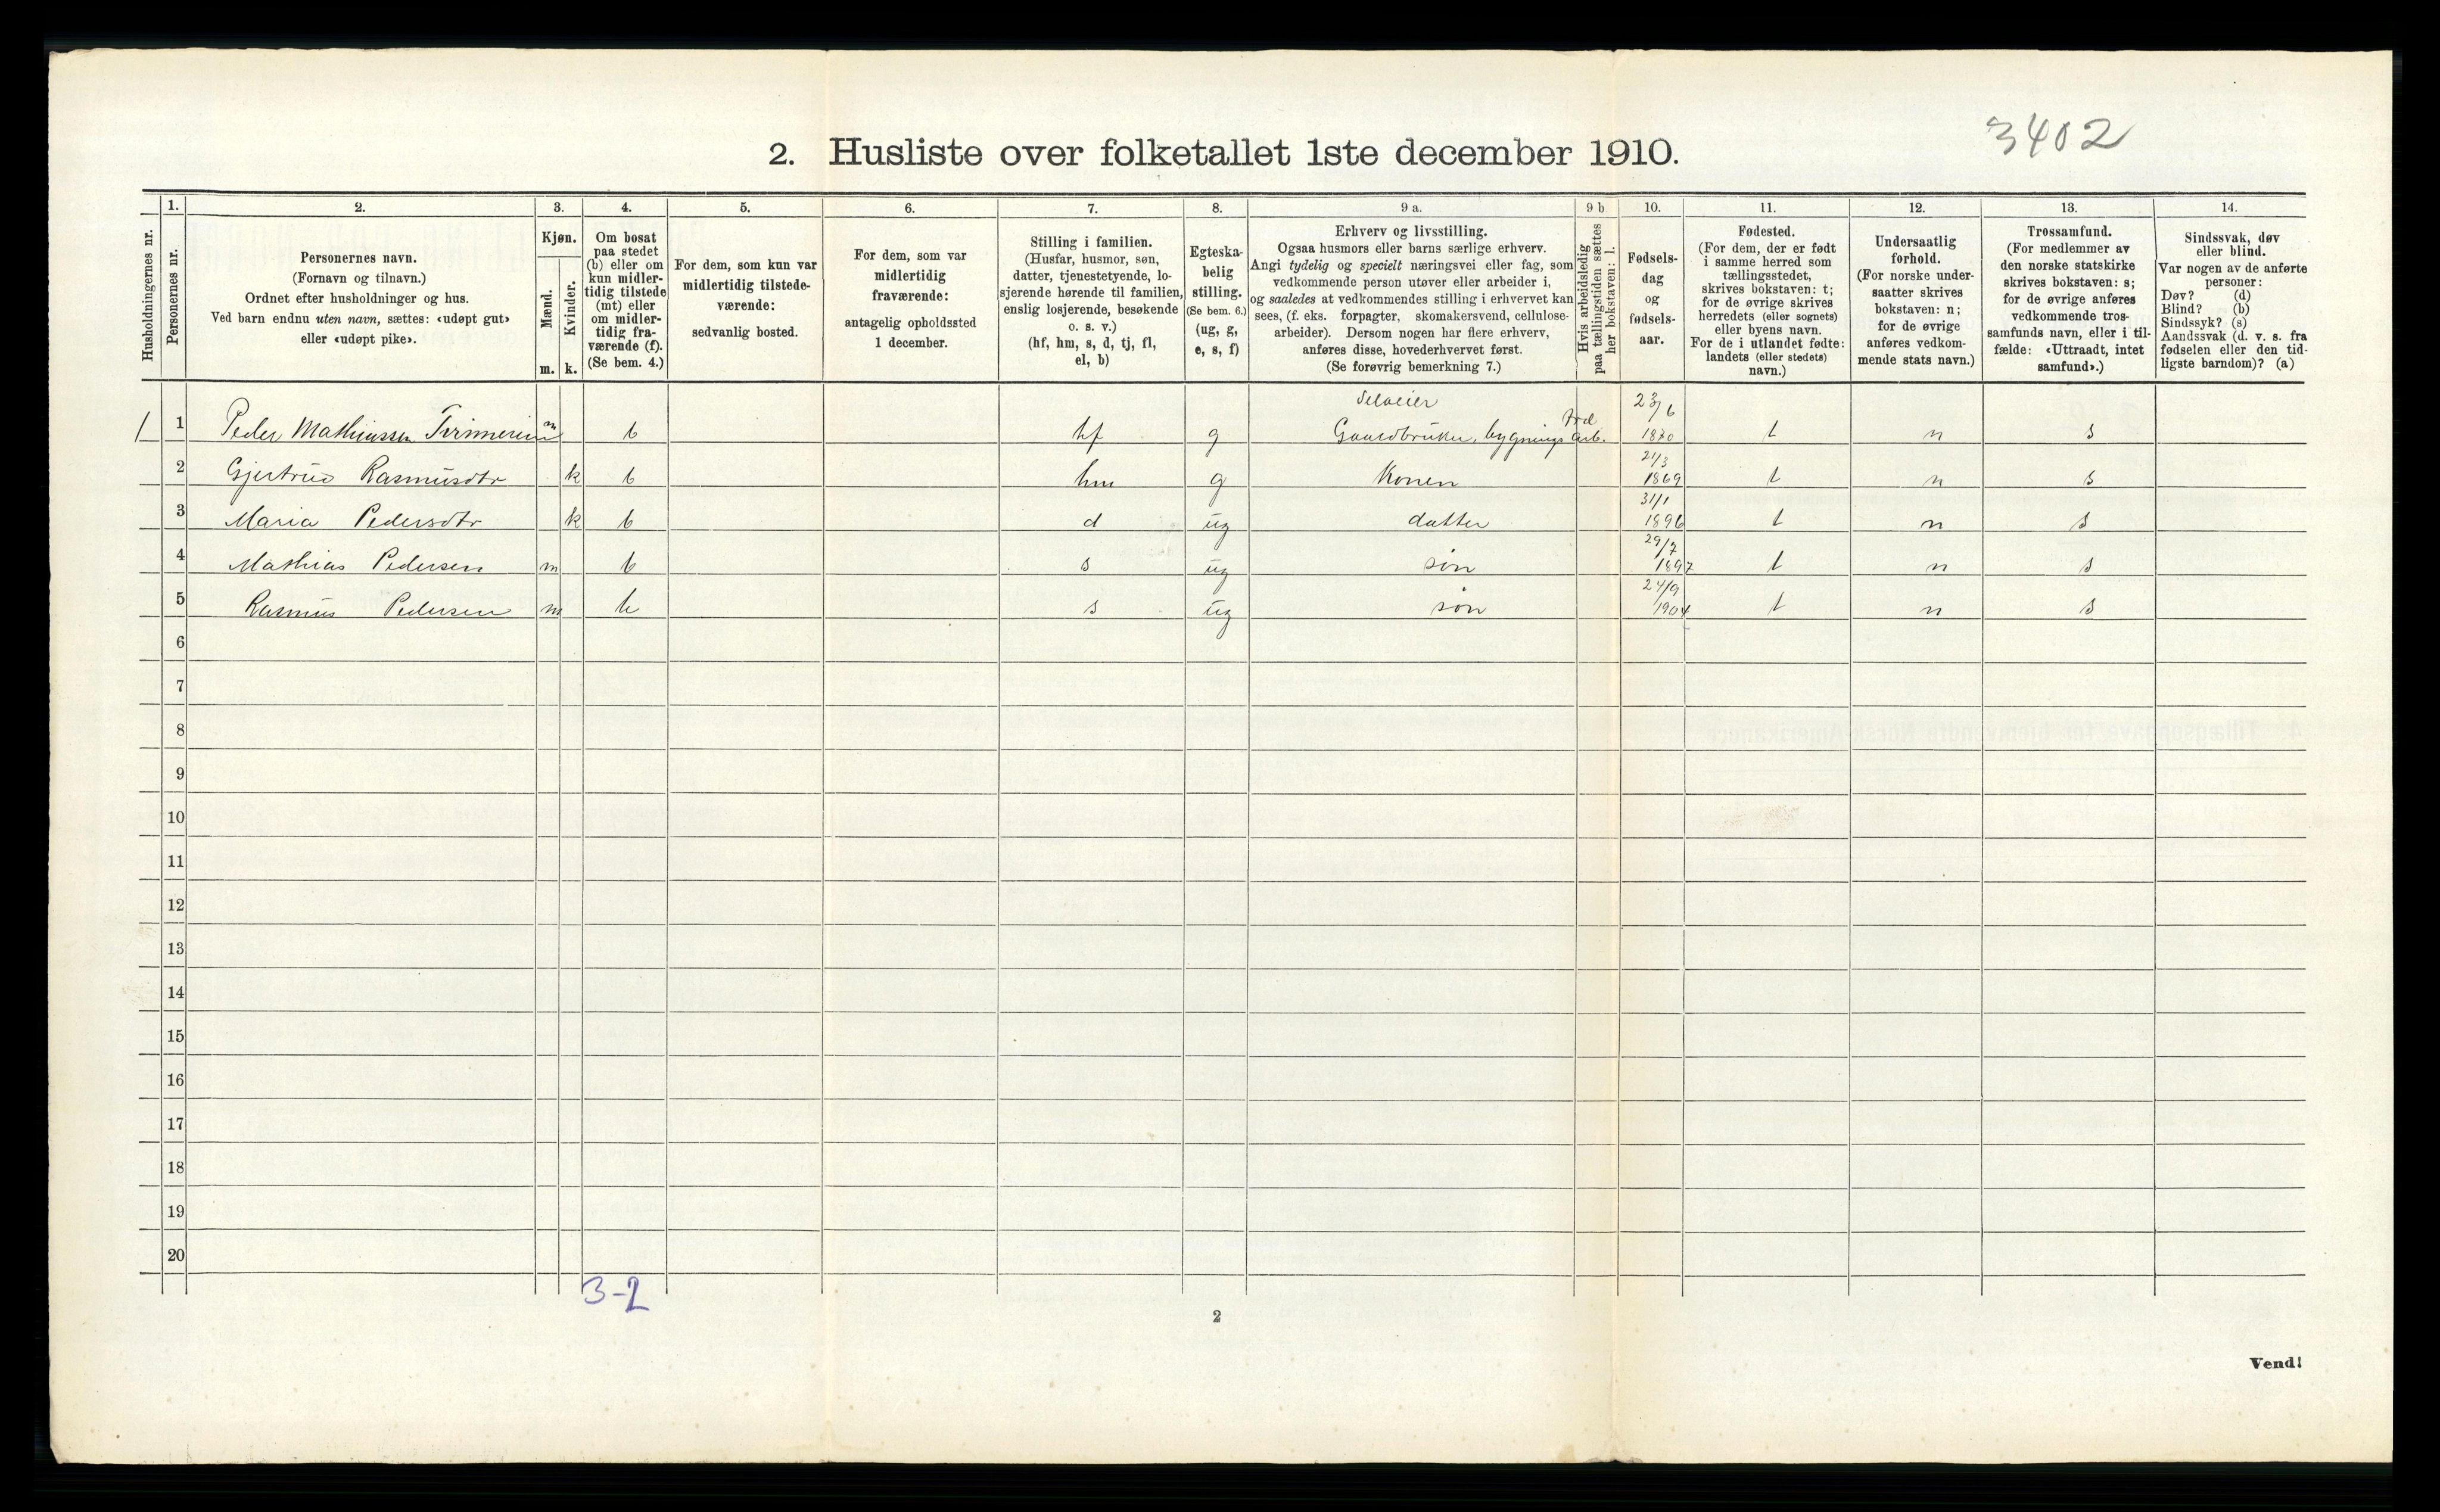 3402
2. Husliste over folketallet 1ste december 1910.
Husholdningernes nr.
1.
Personernes nr.
2.
Personernes navn.
(Fornavn og tilnavn.)
Ordnet efter husholdninger og hus.
Ved barn endnu uten navn, sættes: «udøpt gut»
eller «udøpt pike».
3.
Kjøn.
Mænd.
Kvinder.
m. k.
4.
Om bosat
paa stedet
(b) eller om
kun midler-
tidig tilstede
(mt) eller
om midler-
tidig fra-
værende (f).
(Se bem. 4.)
5.
For dem, som kun var
midlertidig tilstede-
værende:
sedvanlig bosted.
6.
For dem, som var
midlertidig
fraværende:
antagelig opholdssted
1 december.
7.
Stilling i familien.
(Husfar, husmor, søn,
datter, tjenestetyende, lo-
sjerende hørende til familien,
enslig losjerende, besøkende
o. s. v.)
(hf, hm, s, d, tj, fl,
el, b)
8.
Egteska-
belig
stilling.
(Se bem. 6.)
(ug, g,
e, s, f)
9 a.
Erhverv og livsstilling.
Ogsaa husmors eller barns særlige erhverv.
Angi tydelig og specielt næringsvei eller fag, som
vedkommende person utøver eller arbeider i,
og saaledes at vedkommendes stilling i erhvervet kan
sees, (f. eks. forpagter, skomakersvend, cellulose-
arbeider). Dersom nogen har flere erhverv,
anføres disse, hovederhvervet først.
(Se forøvrig bemerkning 7.)
9 b
Hvis arbeidsledig
paa tællingstiden sættes
her bokstaven: l.
10.
Fødsels-
dag
og
fødsels-
aar.
11.
Fødested.
(For dem, der er født
i samme herred som
tællingsstedet,
skrives bokstaven: t;
for de øvrige skrives
herredets (eller sognets)
eller byens navn.
For de i utlandet fødte:
landets (eller stedets)
navn.)
12.
Undersaatlig
forhold.
(For norske under-
saatter skrives
bokstaven: n;
for de øvrige
anføres vedkom-
mende stats navn.)
13.
Trossamfund.
(For medlemmer av
den norske statskirke
skrives bokstaven: s;
for de øvrige anføres
vedkommende tros-
samfunds navn, eller i til-
fælde: «Uttraadt, intet
samfund».)
14.
Sindssvak, døv
eller blind.
Var nogen av de anførte
personer:
Døv? (d)
Blind? (b)
Sindssyk? (s)
Aandssvak (d. v. s. fra
fødselen eller den tid-
ligste barndom)? (a)
1 1 Peder Mathiassen m b hf g Selveier Gaardbruker, bygnings arb. 23/6 1870 t n s
2 Gjertrud Rasmusdtr k b hm g Konen 21/3 1869 t n s
3 Maria Pedersdtr k b d ug datter 31/1 1896 t n s
4 Mathias Pedersen m b s ug søn 29/7 1897 t n s
5 Rasmus Pedersen m b s ug søn 24/9 1904 t n s
6
7
8
9
10
11
12
13
14
15
16
17
18
19
20
3-2
2
Vend!